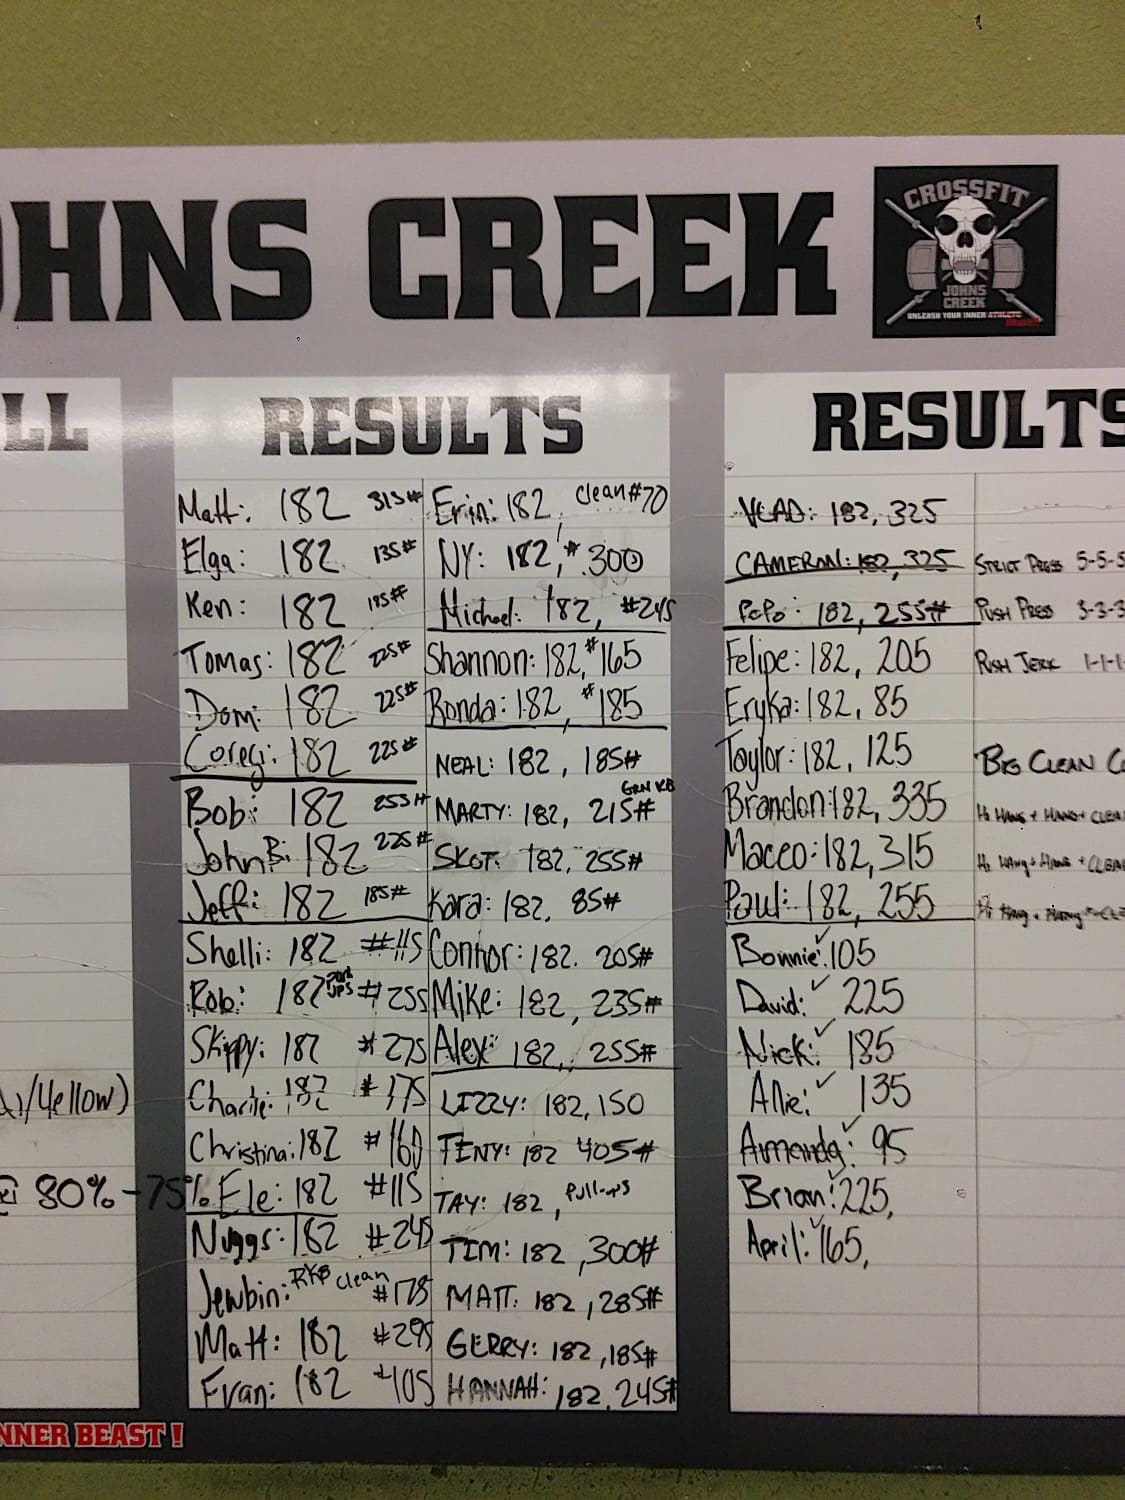 OHNS CREEK
CROSSFIT
JOHNS
CREEK
UNLEASH YOUR INNER ATHLETE
LL
RESULTS
Matt: 182 315#
Elga: 182 135#
Ken: 182 185#
Tomas: 182 225#
Dom: 182 225#
182 225#
Bob: 182 255#
John B: 182 225#
Jeff: 182 185#
Shelli: 182 #115
Rob: 182 UPS #255
Skippy: 182 #275
Charlie: 182 #175
Christina: 182 #160
Ele: 182 #115
Nuggs: 182 #245
Jewbin: RKB clean #175
Matt: 182 #295
Evan: 182 #105
Erin: 182, clean #70
NY: 182, # 300
Michael: 182, #245
Shannon: 182, #165
Ronda: 182, #185
NEAL: 182, 185#
GRN KB
MARTY: 182, 215#
SKOT: 182, 255#
Kara: 182, 85#
Connor: 182. 205#
Mike: 182, 235#
Alex: 182, 255#
LIZZY: 182, 150
TENY: 182 405#
TAY: 182, Pull-ups
TIM: 182, 300#
MATT: 182, 285#
GERRY: 182, 185#
HANNAH: 182, 245#
RESULTS
VLAD: 182, 325
CAMERON: 182, 325
PePo: 182, 255#
Felipe: 182, 205
Eryka: 182, 85
Taylor: 182, 125
Brandon: 182, 335
Maceo: 182, 315
Paul: 182, 255
Bonnie: ✓ 105
David: ✓ 225
Nick: ✓ 185
Allie: ✓ 135
Amanda: ✓ 95
Brian: ✓ 225,
April: ✓ 165,
STRICT PRESS 5-5-5
PUSH PRESS 3-3-3
PUSH JERK 1-1-1-
BIG CLEAN CO
Hi HANG + HANG + CLEA
Hi HANG + HANG + CLEA
Hi Hang + Hang + CLE
/Yellow)
80% - 75%
NNER BEAST!